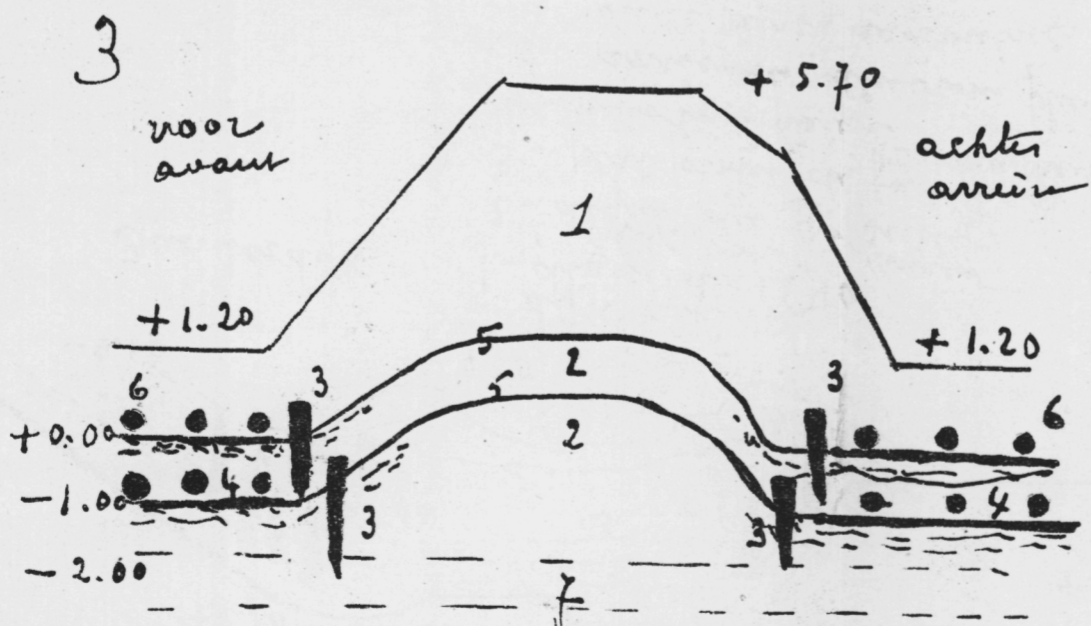 3
voor
avant
+ 5.70
achter
arrière
1
+ 1.20
+ 1.20
5
2
6
3
3
6
5
+ 0.00
2
4
- 1.00
4
3
3
- 2.00
7